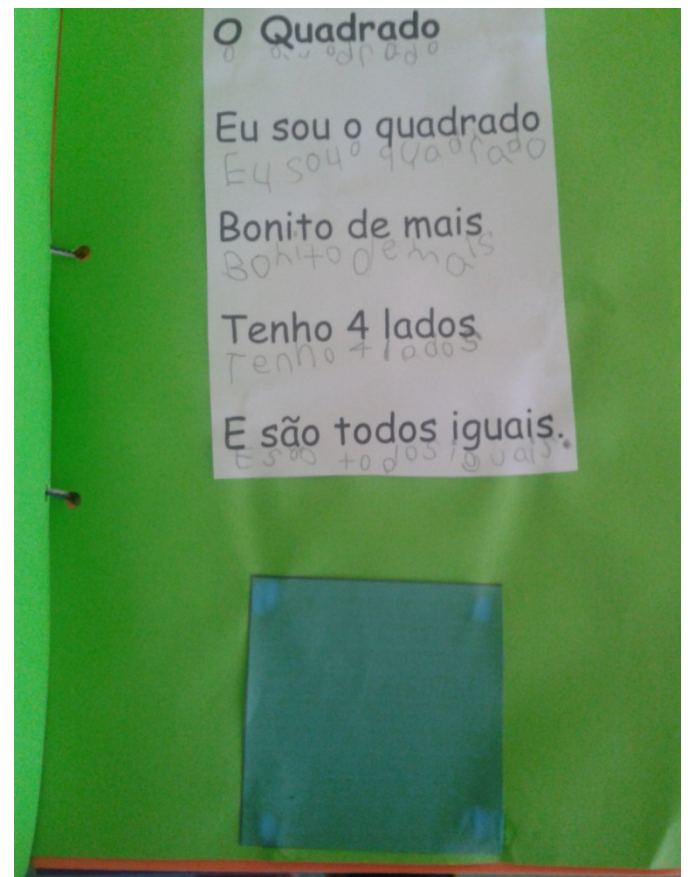 O Quadrado
O Quadrado
Eu sou o quadrado
Eu sou o quadrado
Bonito de mais
Bonito de mais
Tenho 4 lados
Tenho 4 lados
E são todos iguais.
E são todos iguais.